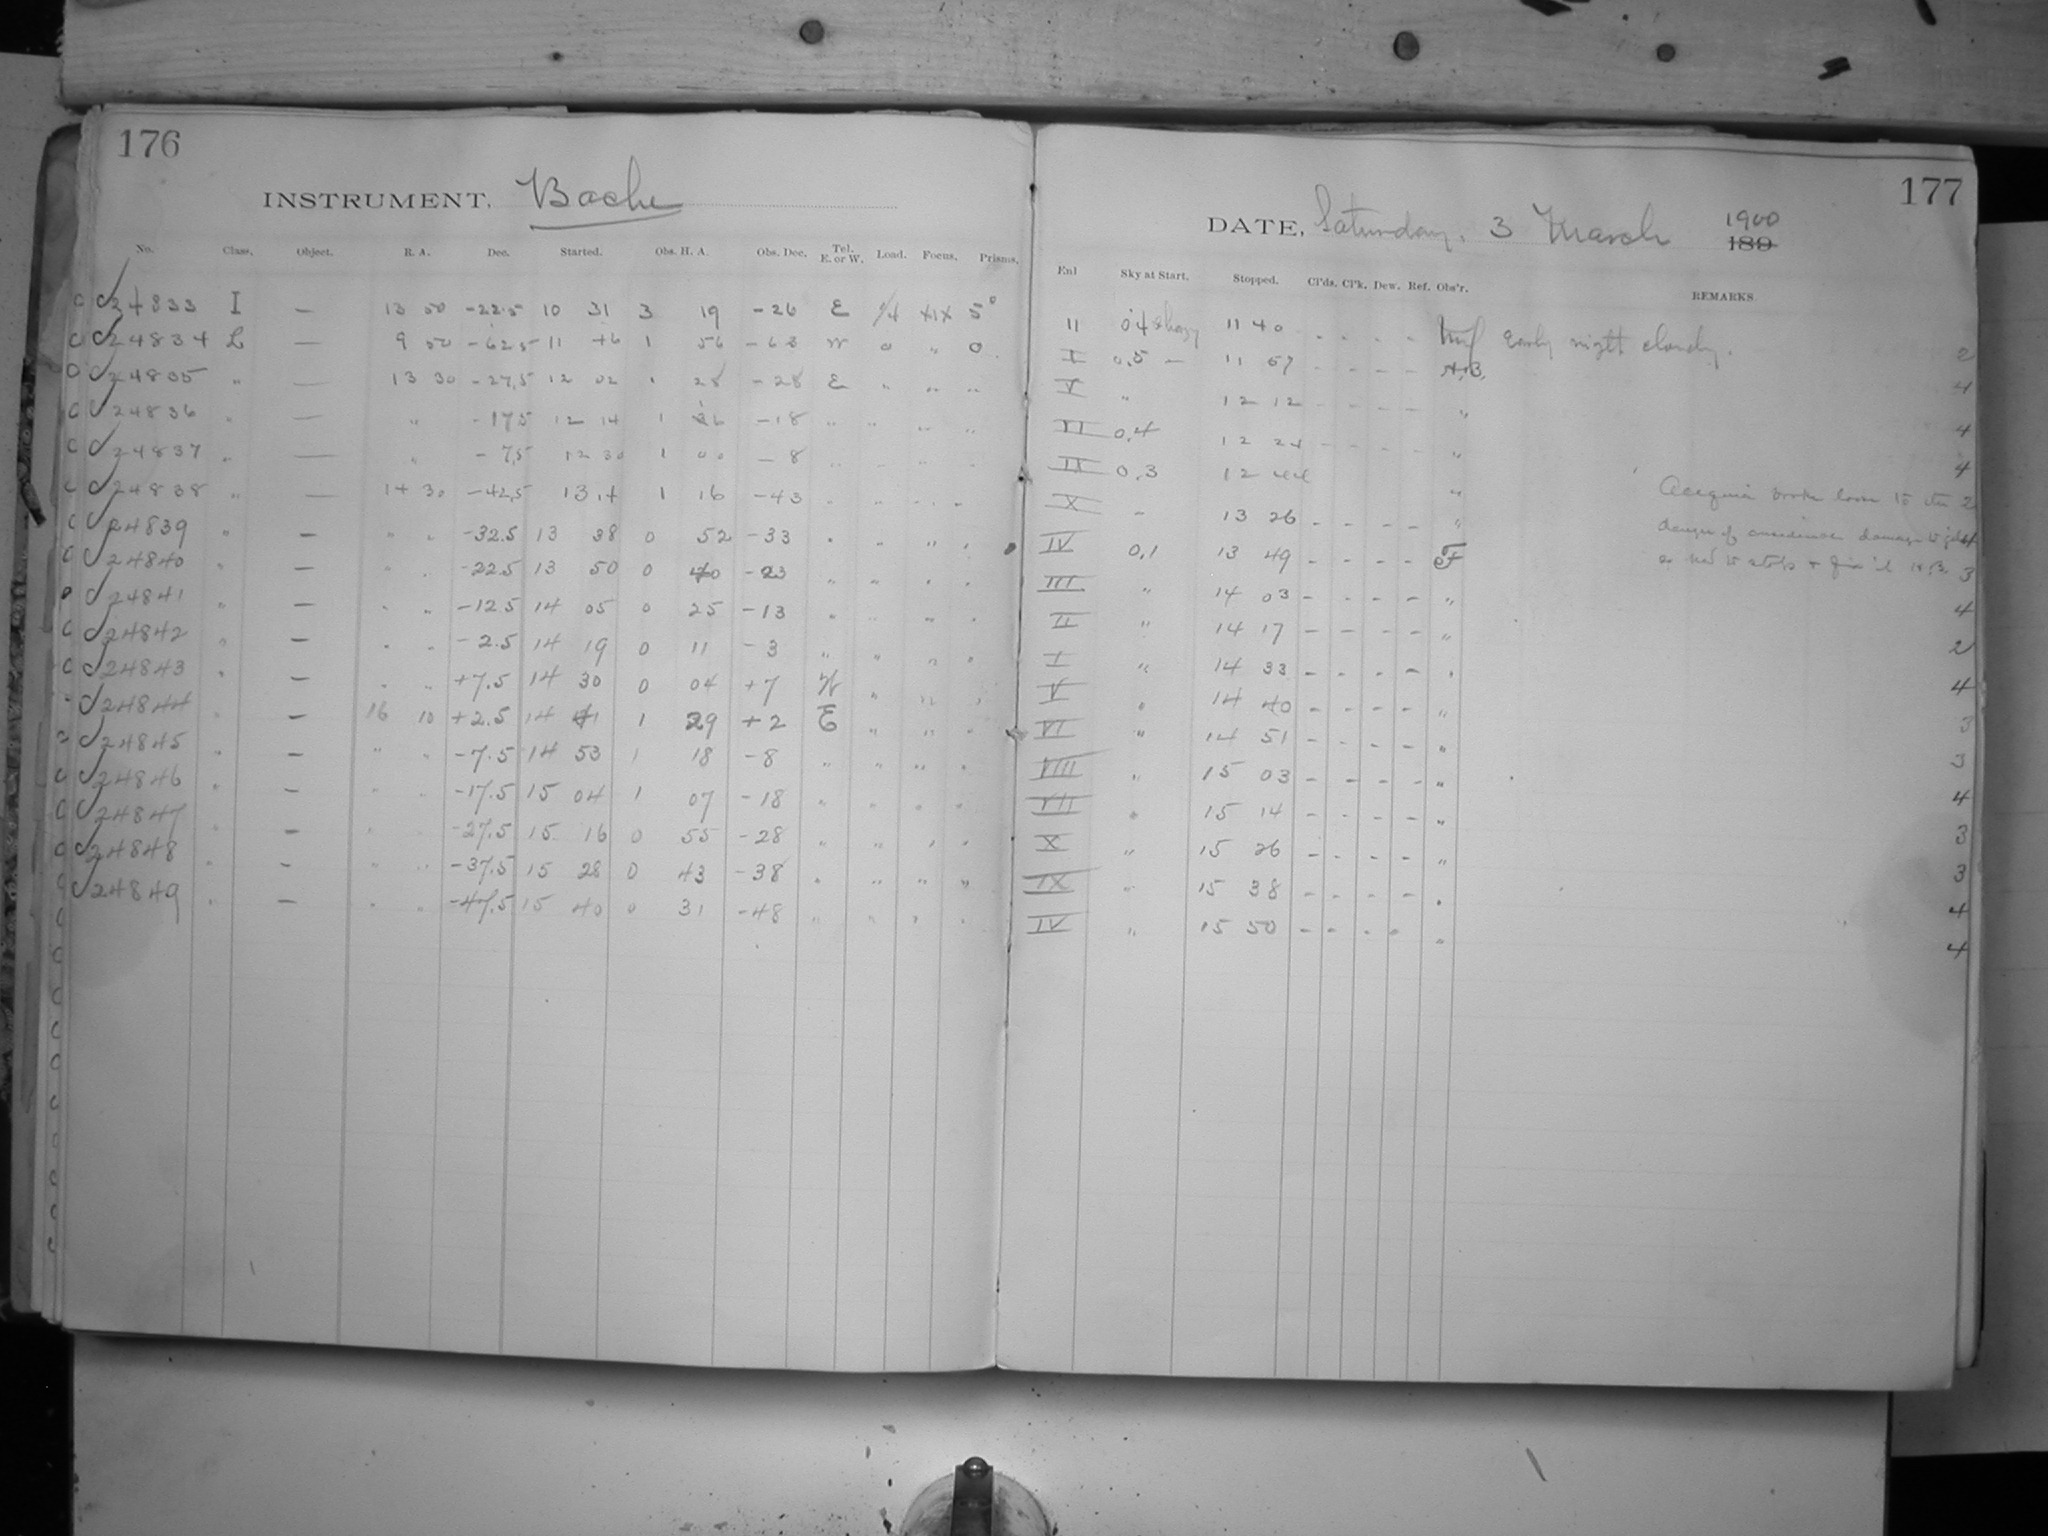 176
INSTRUMENT, Bache
No. Class, Object. R. A. Dec. Started. Obs. H. A. Obs. Dec. Tel. E. or W. Load. Focus. Prisms.
C 24833 I — 13 50 -22.5 10 31 3 19 -26 E XIX 5°
C 24834 L — 9 50 -62.5 11 46 1 56 -63 W 0 " 0
C 24835 " — 13 30 -27.5 12 02 1 28 -28 E " " "
C 24836 " — " -17.5 12 14 1 16 -18 " " " "
C 24837 " — " -7.5 12 30 1 00 -8 " " " "
C 24838 " — 14 30 -42.5 13 14 1 16 -43 " " " "
C 24839 " — " " -32.5 13 38 0 52 -33 " " " "
C 24840 " — " " -22.5 13 50 0 40 -23 " " " "
C 24841 " — " " -12.5 14 05 0 25 -13 " " " "
C 24842 " — " " -2.5 14 19 0 11 -3 " " " "
C 24843 " — " " +7.5 14 30 0 04 +7 W " " "
24844 " — 16 10 +2.5 14 41 1 29 +2 E " " "
C 24845 " — " " -7.5 14 53 1 18 -8 " " " "
C 24846 " — " " -17.5 15 04 1 07 -18 " " " "
C 24847 " — " " -27.5 15 16 0 55 -28 " " " "
C 24848 " — " " -37.5 15 28 0 43 -38 " " " "
24849 " — " " -47.5 15 40 0 31 -48 " " " "
177
DATE, Saturday, 3 March 1900 189
Enl Sky at Start. Stopped. Cl'ds. Cl'k. Dew. Ref. Obs'r. REMARKS
II 0.4 & hazy 11 40 - - - - Early night cloudy. 2
I 0.5 — 11 57 - - - - 4
V " 12 12 - - - - " 4
VI 0.4 12 24 - - - - " 4
IX 0.3 12 44 " broke loose to the 2
X - 13 26 - - - - " danger of damage to 4
IV 0.1 13 49 - - - - F to stop & fix it 3
III " 14 03 - - - - " 4
II " 14 17 - - - - " 2
I " 14 33 - - - - " 4
V " 14 40 - - - - " 3
VI " 14 51 - - - - " 3
VIII " 15 03 - - - - " 4
VII " 15 14 - - - - " 3
X " 15 26 - - - - " 3
IX " 15 38 - - - - " 4
IV " 15 50 - - - - " 4